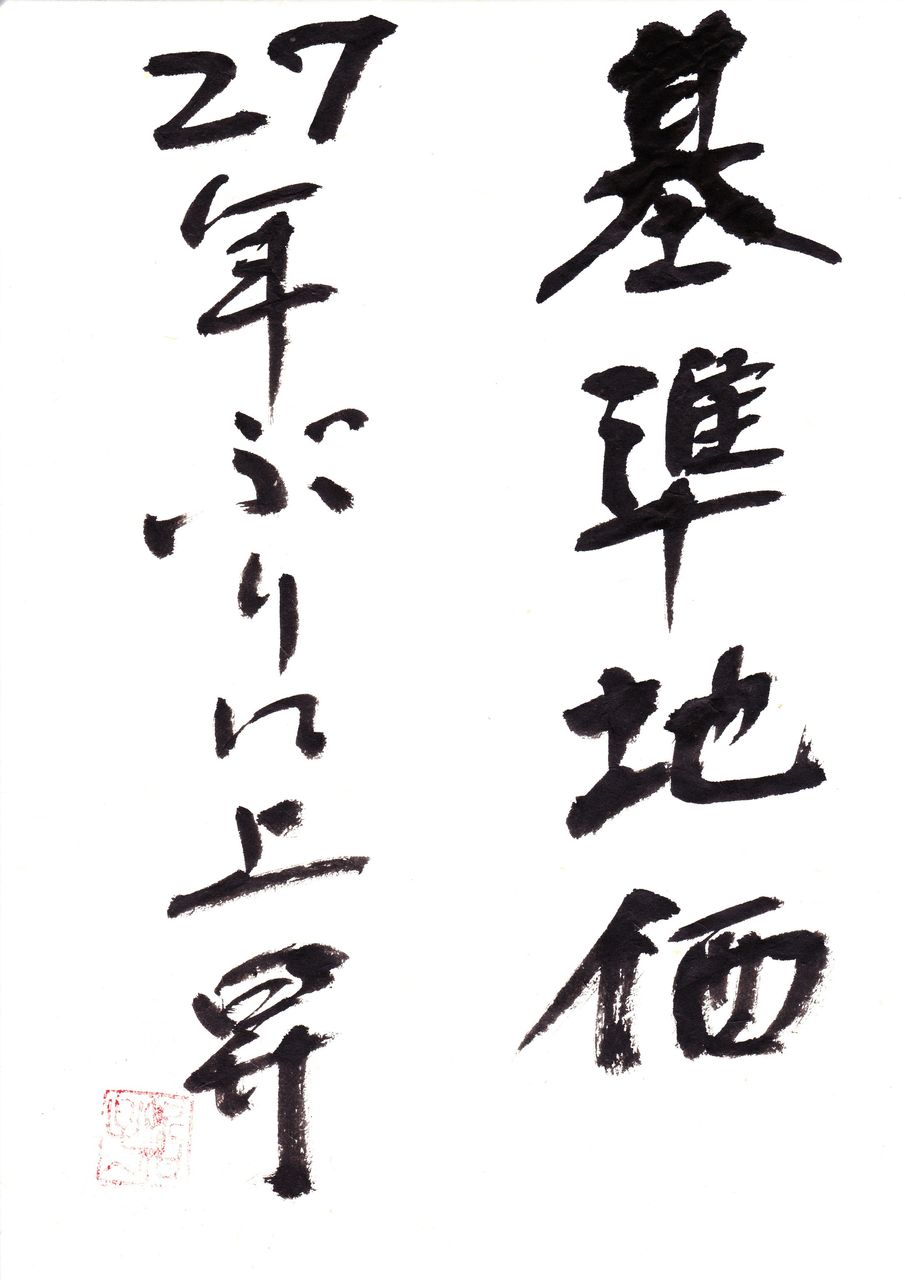 基準地価
27年ぶりに上昇